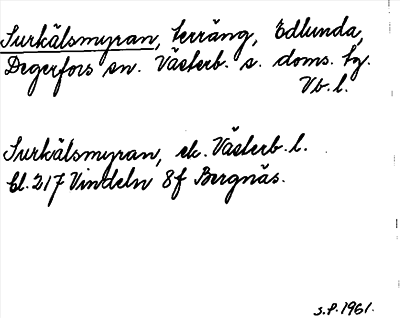 Surkälsmyran, terräng, Edlunda,
Degerfors sn. Västerb. s. doms. tg.
Vb. l.
Surkälsmyran, ek. Västerb. l.
bl. 217 Vindeln 8f Bergnäs.
S.P. 1961.